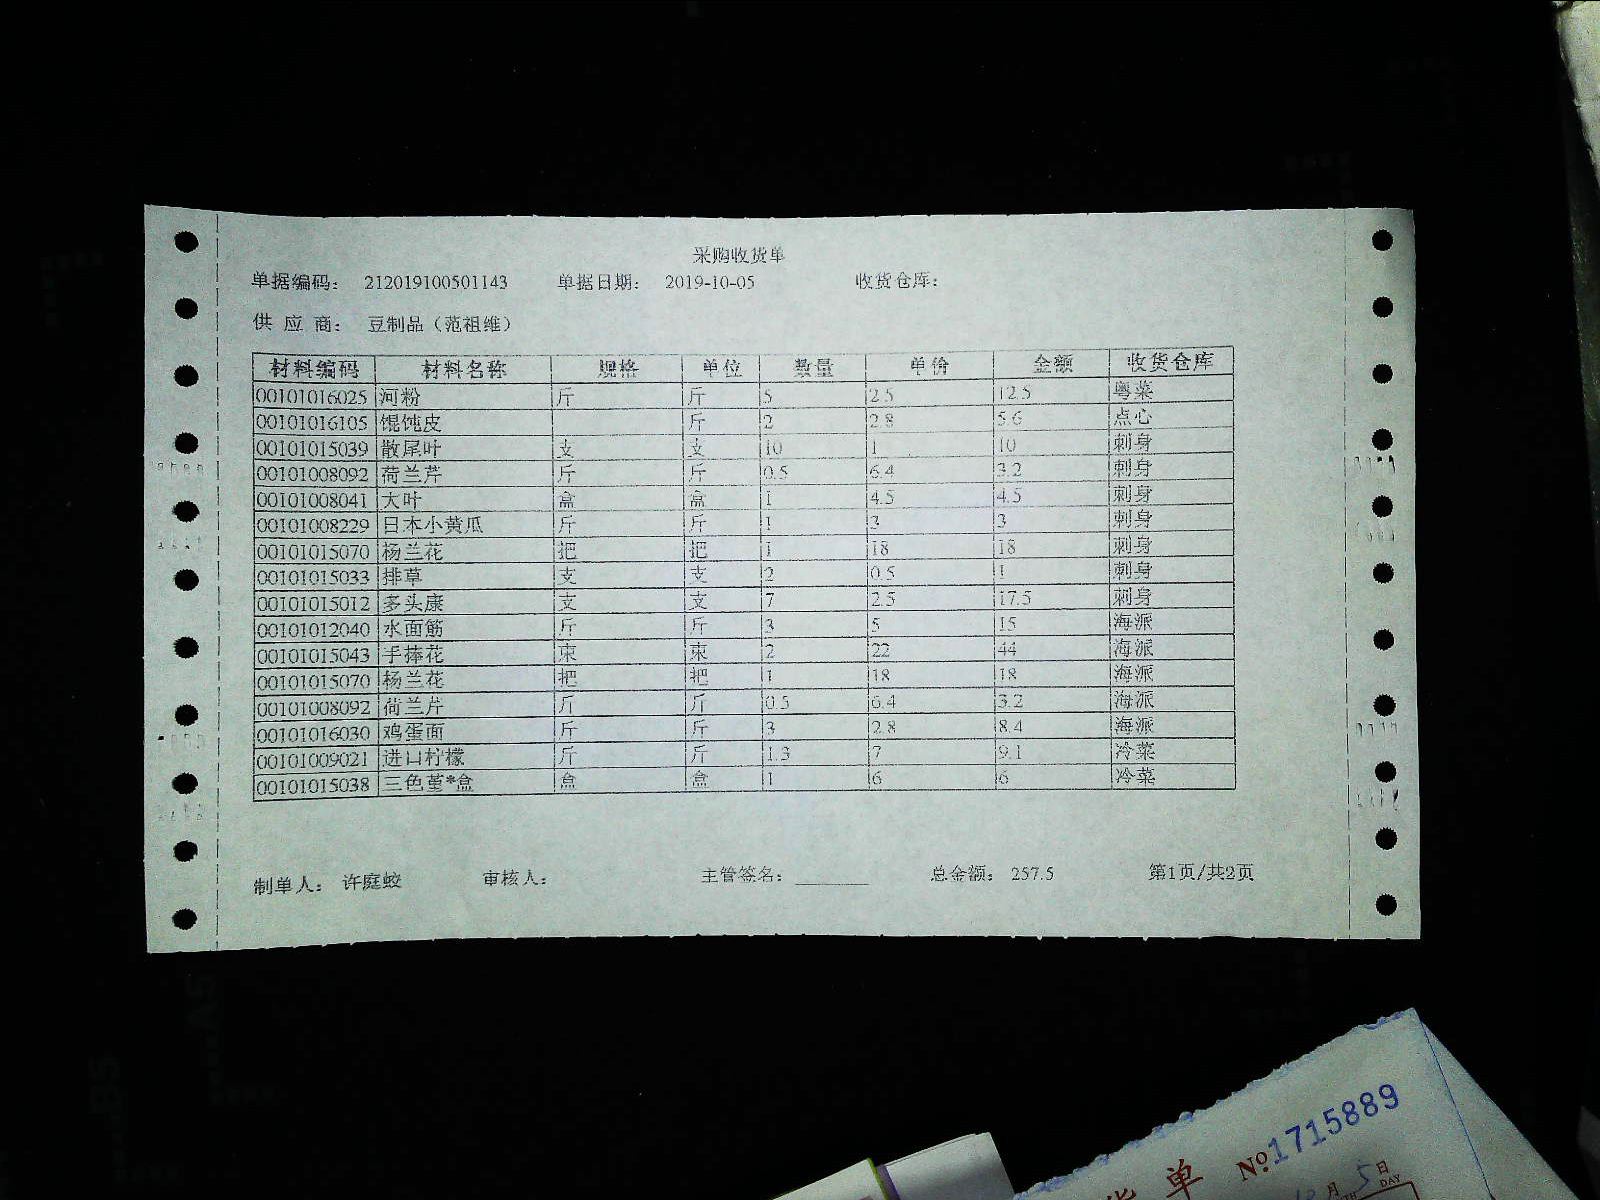 采购收货单
单据编码： 212019100501143 单据日期： 2019-10-05 收货仓库：
供 应 商： 豆制品（范祖维）
材料编码 材料名称 规格 单位 数量 单价 金额 收货仓库
00101016025 河粉 斤 斤 5 2.5 12.5 粤菜
00101016105 馄饨皮 斤 2 2.8 5.6 点心
00101015039 散尾叶 支 支 10 1 10 刺身
00101008092 荷兰芹 斤 斤 0.5 6.4 3.2 刺身
00101008041 大叶 盒 盒 1 4.5 4.5 刺身
00101008229 日本小黄瓜 斤 斤 1 3 3 刺身
00101015070 杨兰花 把 把 1 18 18 刺身
00101015033 排草 支 支 2 0.5 1 刺身
00101015012 多头康 支 支 7 2.5 17.5 刺身
00101012040 水面筋 斤 斤 3 5 15 海派
00101015043 手捧花 束 束 2 22 44 海派
00101015070 杨兰花 把 把 1 18 18 海派
00101008092 荷兰芹 斤 斤 0.5 6.4 3.2 海派
00101016030 鸡蛋面 斤 斤 3 2.8 8.4 海派
00101009021 进口柠檬 斤 斤 1.3 7 9.1 冷菜
00101015038 三色堇*盒 盒 盒 1 6 6 冷菜
制单人： 许庭蛟 审核人： 主管签名：________ 总金额： 257.5 第1页/共2页
单 №1715889
月 5 日
DAY